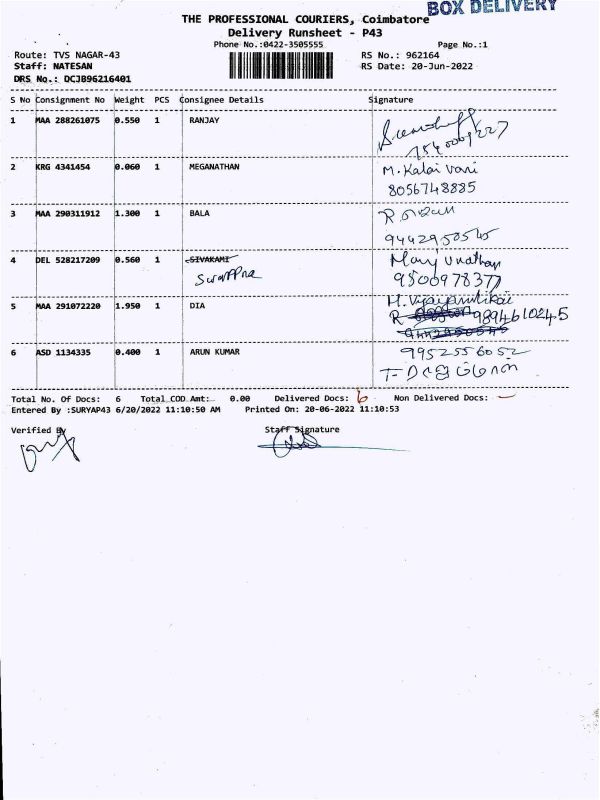 BOX DELIVERY
THE PROFESSIONAL COURIERS, Coimbatore
Delivery Runsheet - P43
Phone No.:0422-3505555 Page No.:1
Route: TVS NAGAR-43 RS No.: 962164
Staff: NATESAN RS Date: 20-Jun-2022
DRS No.: DCJB96216401
S No Consignment No Weight PCS Consignee Details Signature
1 MAA 288261075 0.550 1 RANJAY
2 KRG 4341454 0.060 1 MEGANATHAN M. Kalai vani
8056748885
3 MAA 290311912 1.300 1 BALA
9442950545
4 DEL 528217209 0.560 1 SIVAKAMI
9500978377
5 MAA 291072220 1.950 1 DIA
9894610245
6 ASD 1134335 0.400 1 ARUN KUMAR 9952556052
Total No. Of Docs: 6 Total COD Amt: 0.00 Delivered Docs: 6 Non Delivered Docs: -
Entered By :SURYAP43 6/20/2022 11:10:50 AM Printed On: 20-06-2022 11:10:53
Verified By Staff Signature